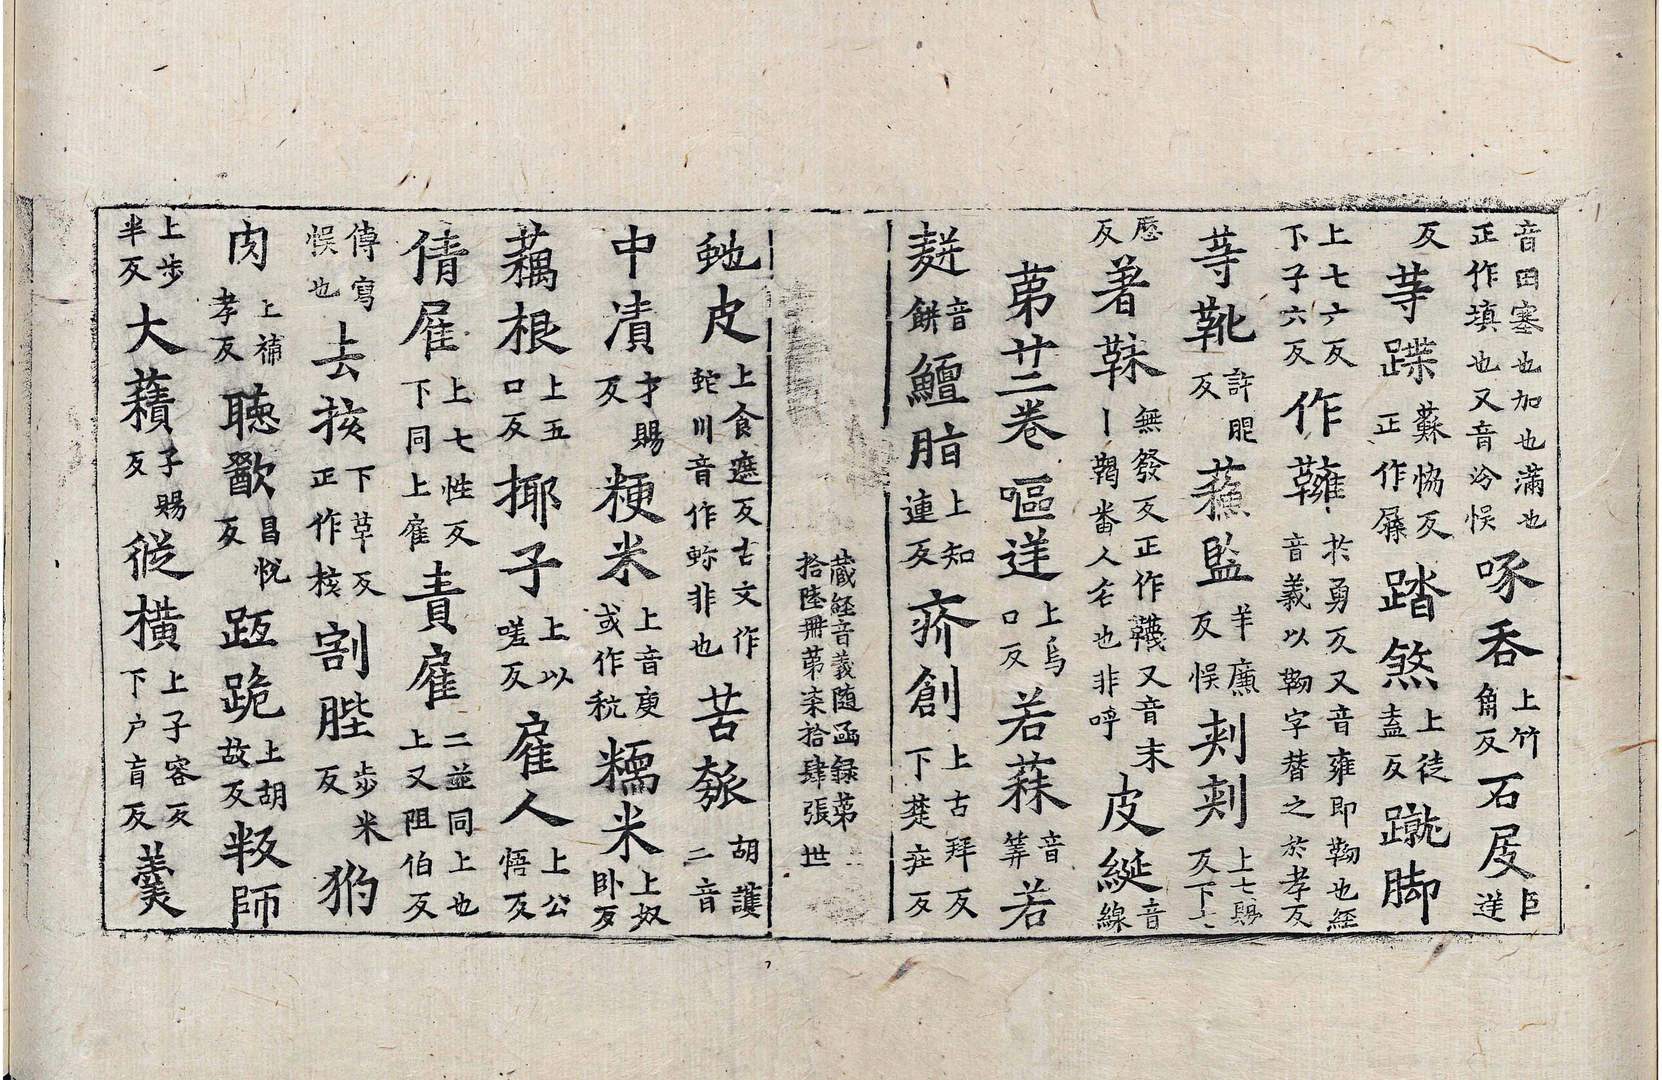 音田塞也加也滿也正作填也又音沴悮啄呑上竹角反石屐臣逆
反䓁蹀蘇恊反正作屧踏煞上徒盍反蹴脚
上七六反下子六反作鞾於勇反又音雍即靿也經音義以靿字替之於孝反
䓁靴許𦙆反䕭監羊廉反悮刾刾上七賜反下七
歷反著韎無發反正作韈又音末丨鞨番人名也非呼皮綖音線
苐廿二卷嘔逆上烏口反若蒜音筭若
麨音餅鱣脂上知連反疥創上古拜反下楚庄反
藏經音義随函録苐拾陸冊苐柒拾肆張 世
虵皮上食遮反古文作蛇川音作䖡非也苦瓠胡護二音
中漬才賜反粳米上音庚或作秔糯米上奴卧反
藕根上五口反揶子上以嗟反雇人上公悟反
倩雇上七性反下同上雇責雇二並同上也上又阻伯反
傳寫悮也去挍下草反正作核割䏶步米反犳
肉上補孝反聴歠昌恱反跓跪上胡故反㸞師
上步半反大𧂐子賜反從横上子容反下户盲反羹